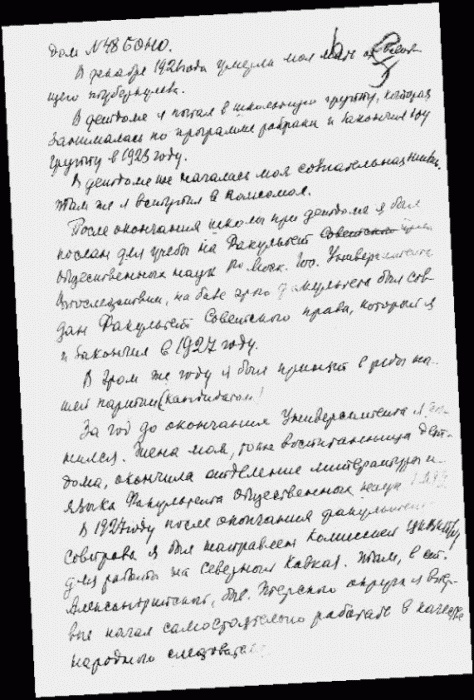 дом №48 ЕОНО.
В декабре 1921 года умерла моя мать от
щего туберкулеза.
В детдоме я попал в школьную группу, которая
занималась по программе рабфака и закончил эту
группу в 1923 году.
В детдоме же началась моя сознательная жизнь.
Там же я вступил в комсомол.
После окончания школы при детдоме я был
послан для учебы на Факультет Советского права
общественных наук Моск. Гос. Университета
Впоследствии, на базе этого факультета был соз
дан Факультет Советского права, который я
и закончил в 1927 году.
В этом же году я был принят в ряды на-
шей партии (кандидатом)
За год до окончания Университета я же-
нился. Жена моя, тоже воспитанница дет-
дома, окончила отделение литературы и
языка Факультета общественных наук
В 1927 году после окончания факультета
Совправа я был направлен Комиссией
для работы на Северный Кавказ. Там, в ст.
Александрийской, быв. Терского округа я впер
вые начал самостоятельно работать в качестве
народного следователя